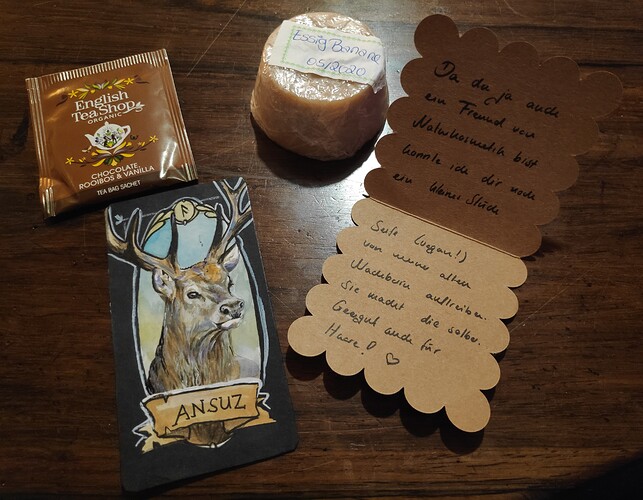 English
Tea Shop
ORGANIC
CHOCOLATE,
ROOIBOS & VANILLA
TEA BAG SACHET
Essig Banane
05/2020
ANSUZ
Da du ja auch
ein Freund von
Naturkosmetik bist
konnte ich dir noch
ein kleines Stück
Seife (vegan!)
von meiner alten
Nachbarin auftreiben.
Sie macht die selber.
Geeignet auch für
Haare! ♡